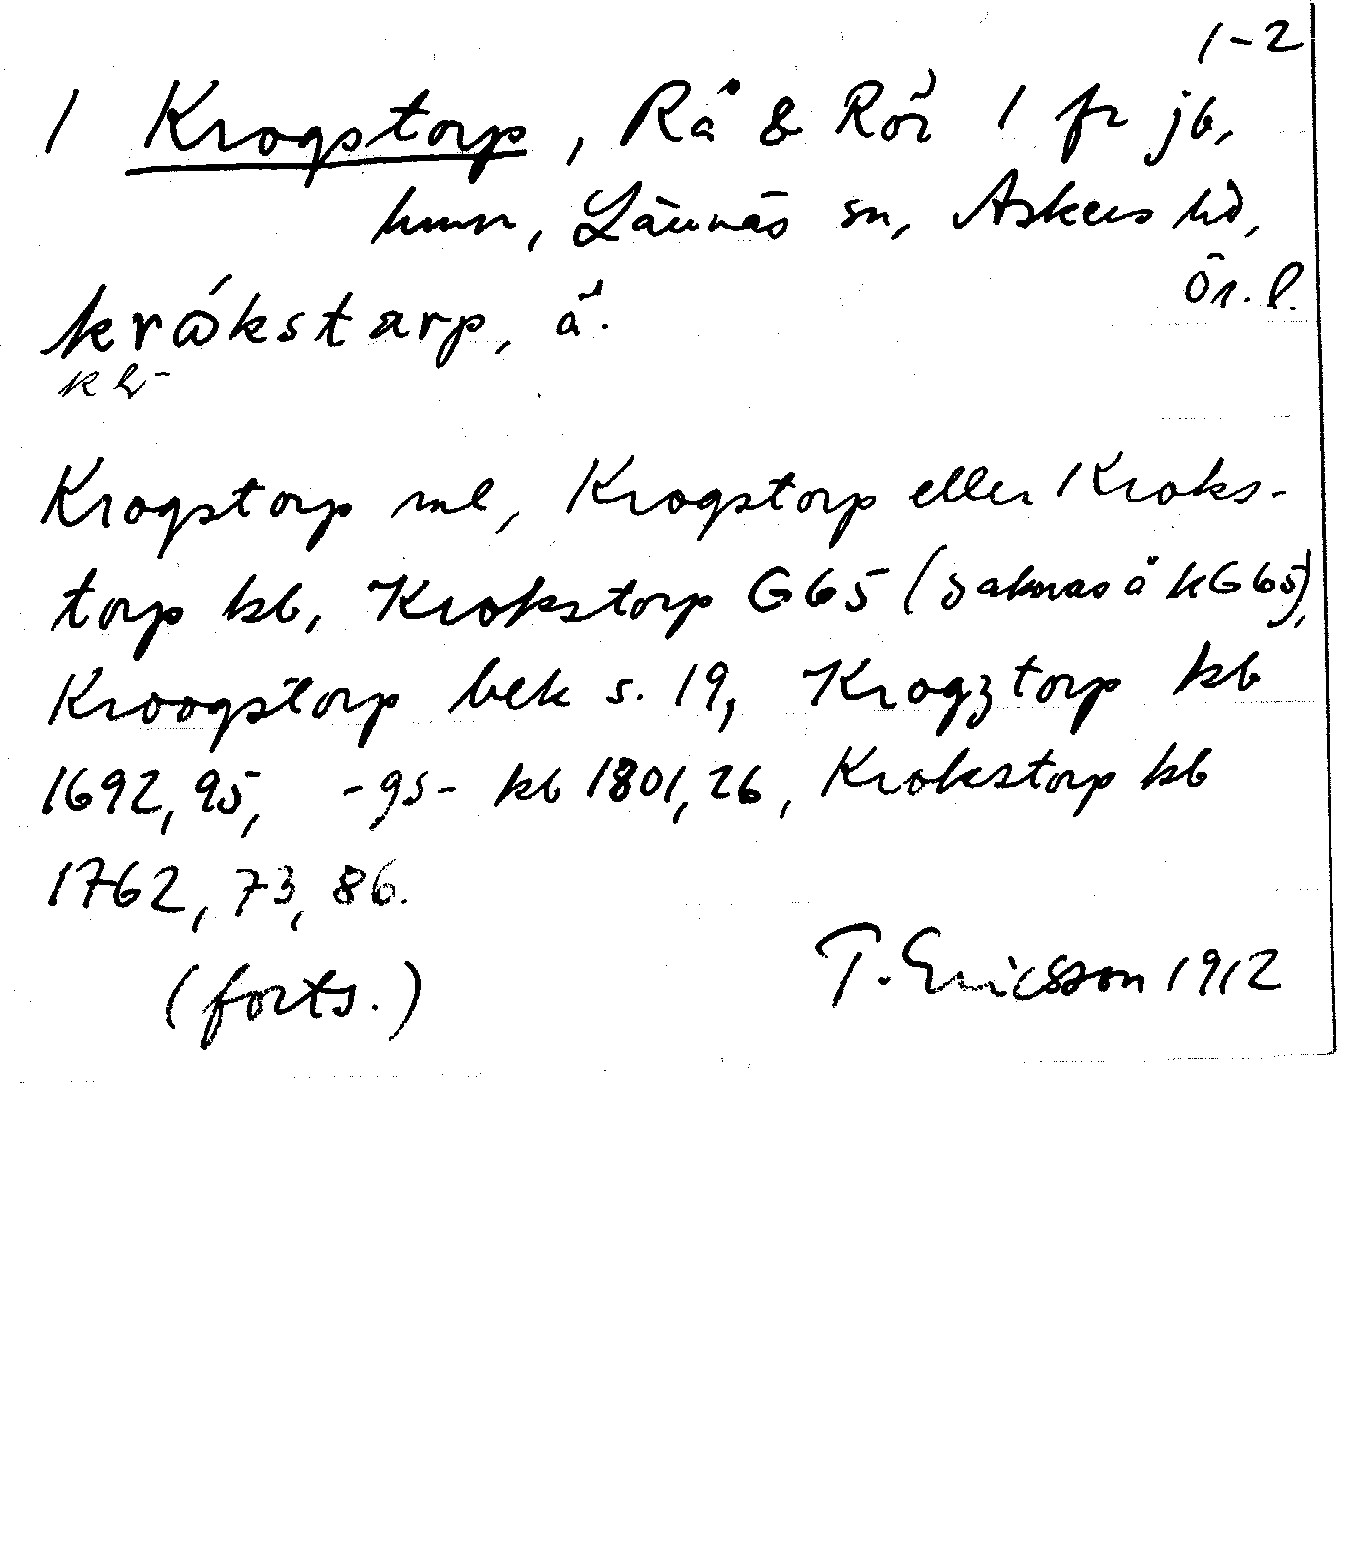 1-2
1 Krogstorp, Rå & Rör 1 fr jb,
hmn, Lännäs sn, Askers hd,
Ör. l.
krå̀kstarp, å̀.
kh-
Krogstorp ml, Krogstorp eller Kroks-
torp kb, Krokstorp G65 (saknas å kG65),
Kroogstorp bek s. 19, Krogztorp kb
1692, 95, -gs- kb 1801, 26, Krokstorp kb
1762, 73, 86.
(forts.) T. Ericsson 1912